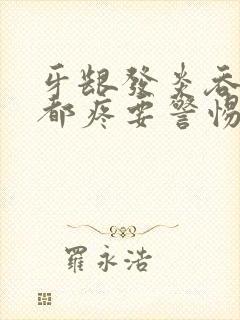 牙龈發炎吞
都疼要警惕
羅永浩